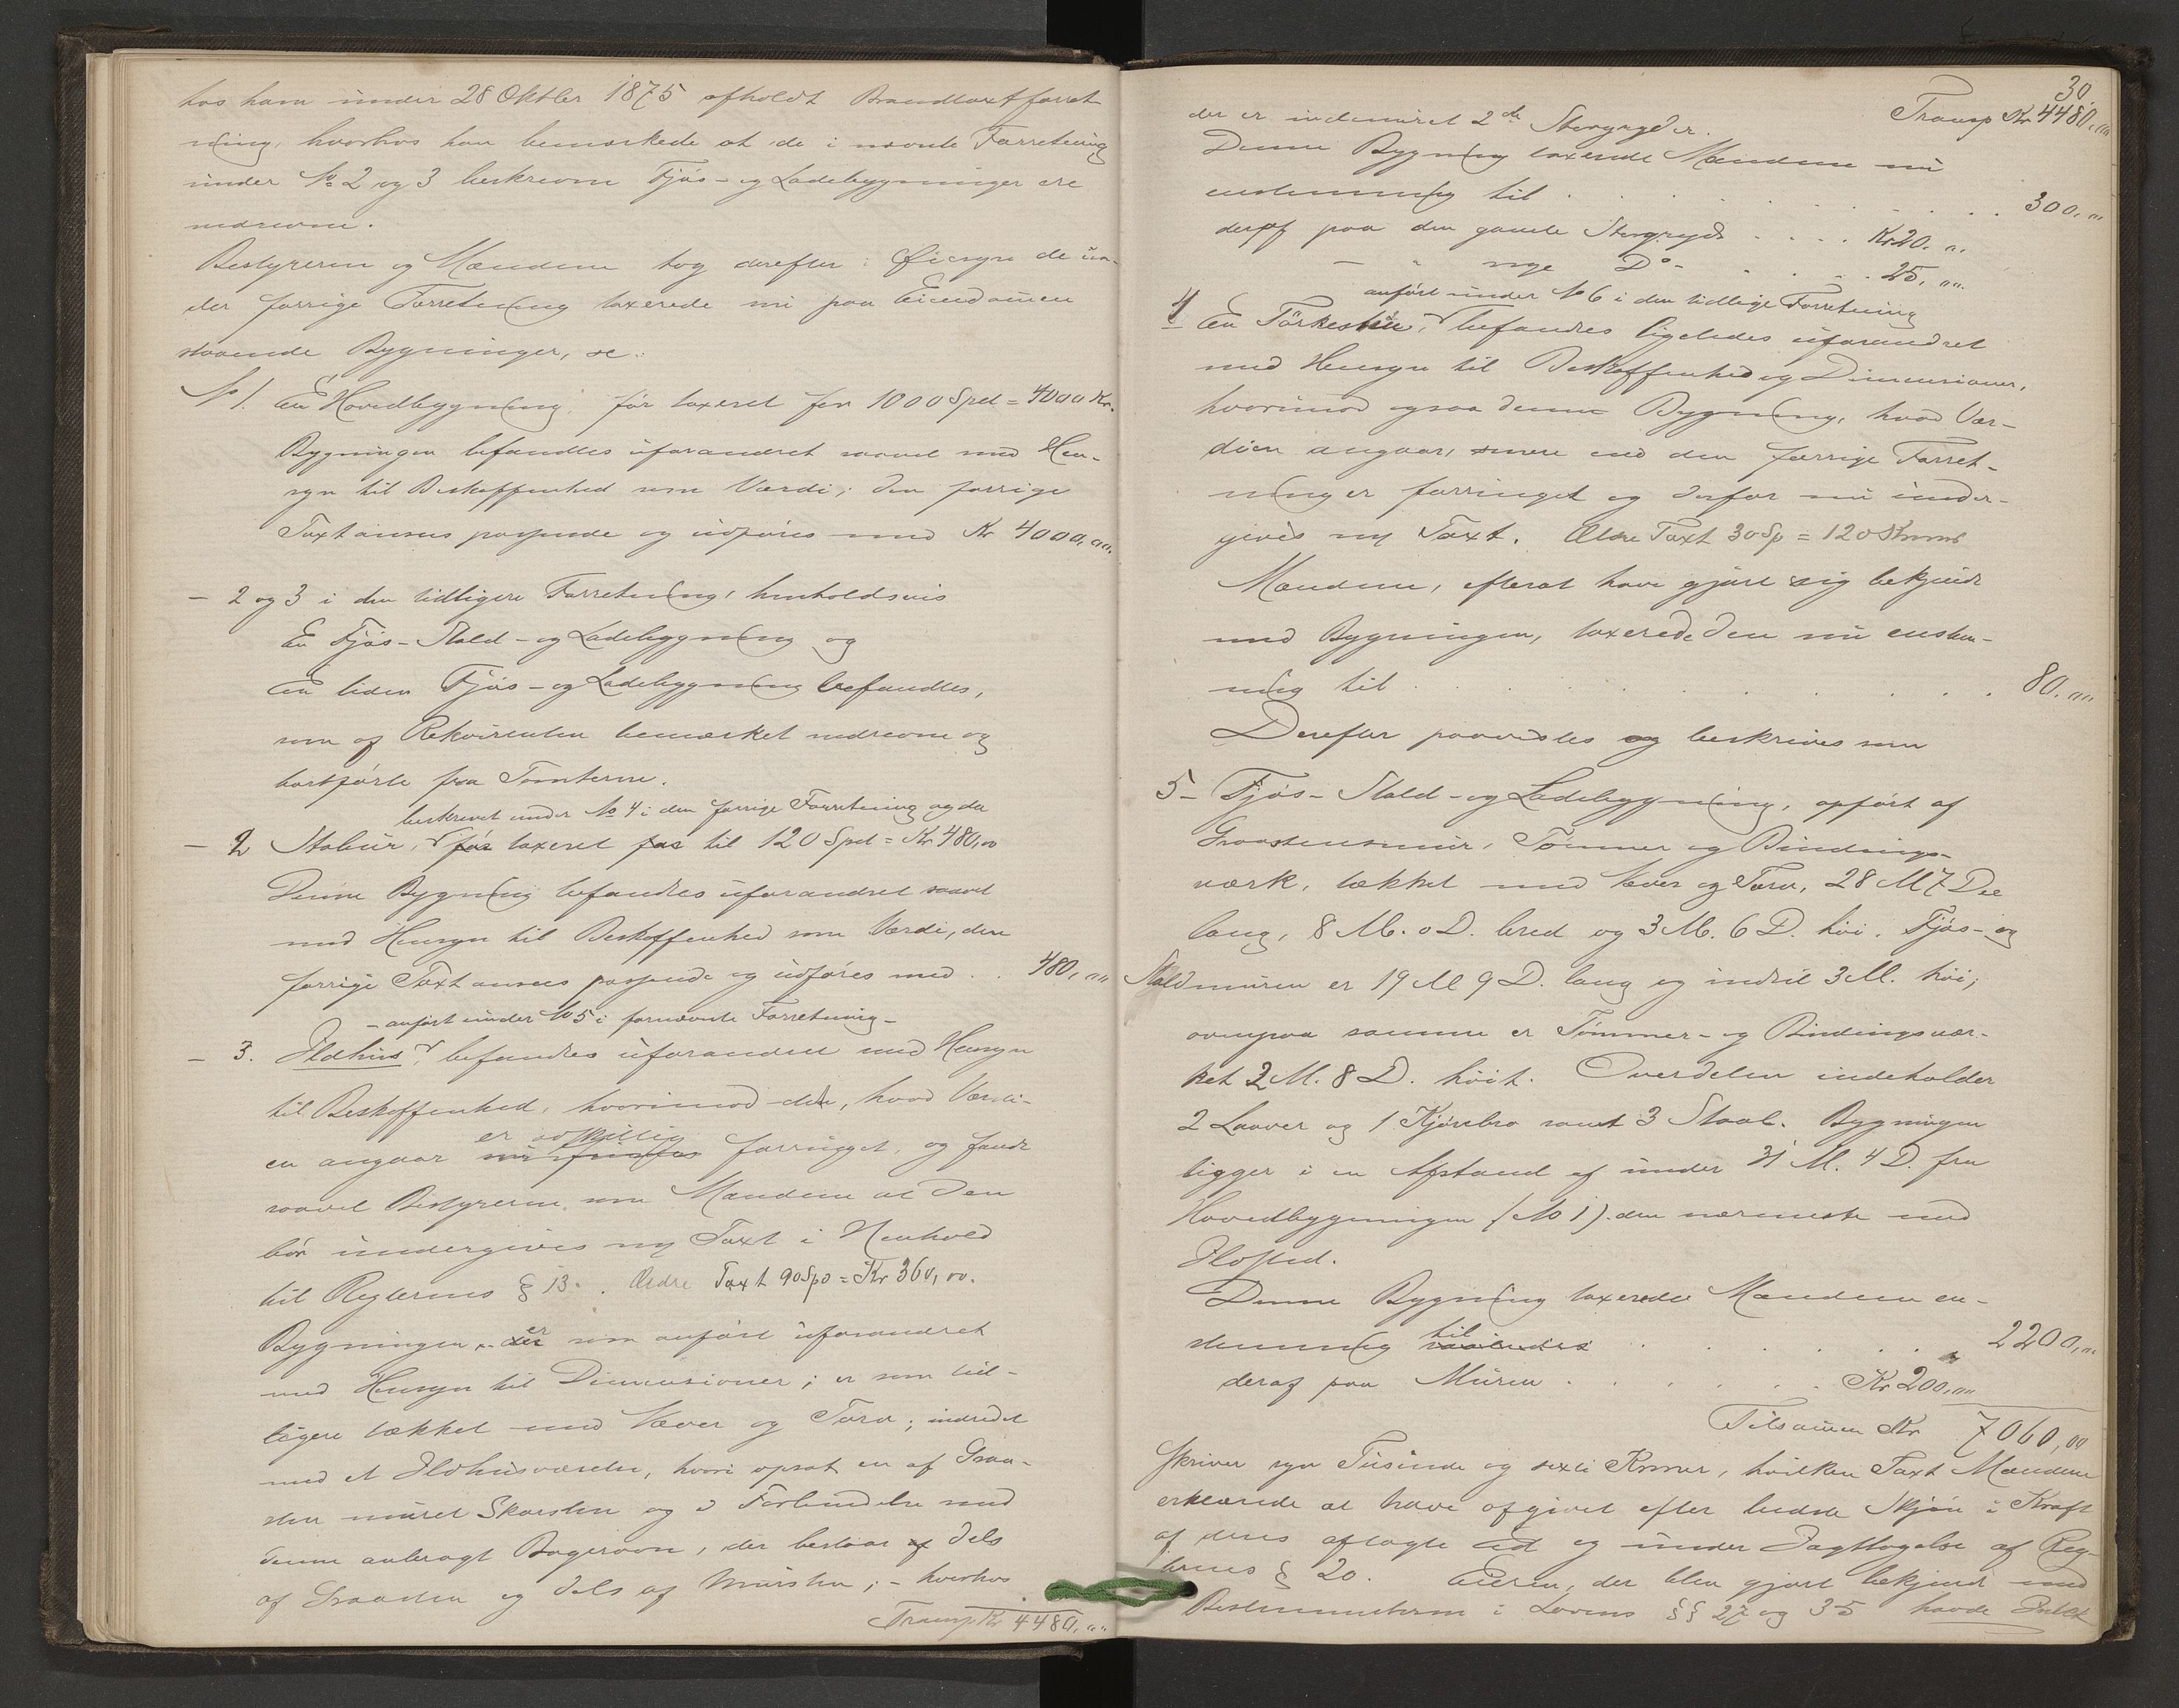 hos ham under 28 Oktbr 1875 afholdt Brandtaxtforret
ning, hvorhos han bemærkede at de i nævnte Forretning
under No 2 og 3 beskrevne Fjøs- og Ladebygninger ere
nedrevne.
Bestyreren og Mændene tog derefter i Øiesyn de un-
der forrige Forretning taxerede nu paa Eiendommen
staaende Bygninger, se:
No 1. En Hovedbygning, før taxeret for 1000 Spd = 4000 Kr.
Bygningen befandtes uforandret saavel med Hen-
syn til Beskaffenhed som Værdi; den forrige
Taxt ansees passende og udføres med Kr 4000,00.
- 2 og 3 i den tidligere Forretning, henholdsvis
En Fjøs- Stald- og Ladebygning og
En liden Fjøs- og Ladebygning befandtes,
som af Rekvirenten bemærket nedrevne og
bortførte fra Tomterne.
beskrevet under No 4 i den forrige Forretning og da
- 2 Stabur, før taxeret for til 120 Spd = Kr 480,00
Denne Bygning befandtes uforandret saavel
med Hensyn til Beskaffenhed som Værdi, den
forrige Taxt ansees passende og udføres med . . 480,00
- anført under No 5 i fornævnte Forretning -
- 3. Ildhus, befandtes uforandret med Hensyn
til Beskaffenhed, hvorimod det, hvad Værdi-
er adskillig
en angaar forringet, og fandt
saavel Bestyreren som Mændene at den
bør undergives ny Taxt i Henhold
til Reglernes § 13. Ældre Taxt 90 Spd = Kr 360,00.
er
Bygningen som anført uforandret
med Hensyn til Dimensioner; er som tid-
ligere tækket med Næver og Torv; indredet
med et Ildhusværelse, hvori opsat en af Graa-
sten muret Skorsten og i Forbindelse med
denne anbragt Bagerovn, der bestaar af dels
af Graasten og dels af Mursten; - hvorhos
Transp Kr 4480,00
30
Transp Kr 4480,00
der er indmuret 2de Storgryder.
Denne Bygning taxerede Mændene nu
enstemmig til . . . . . . . . . . 300,00
deraf paa den gamle Storgryde . . . . Kr 20,00
- " nye Do - . . . . 25,00.
anført under No 6 i den tidligere Forretning
4 En Tørkestue, befandtes ligeledes uforandret
med Hensyn til Beskaffenhed og Dimensioner,
hvorimod ogsaa denne Bygning, hvad Vær-
dien angaar, mere end den forrige Forret-
ning er forringet og derfor nu under-
gives ny Taxt. Ældre Taxt 30 Sp = 120 Kroner
Mændene, efterat have gjort sig bekjendt
med Bygningen, taxerede den nu enstem-
mig til . . . . . . . . . . 80,00
Derefter paavistes og beskrives som
5- Fjøs- Stald- og Ladebygning, opført af
Graastensmur, Tømmer og Bindings-
værk, tækket med Næver og Torv, 28 M 7 De
lang, 8 M. 0 D. bred og 3 M. 6 D. høi. Fjøs- og
Staldmuren er 19 M 9 D. lang og indtil 3 M. høi;
ovenpaa samme er Tømmer- og Bindingsvær-
ket 2 M. 8 D. høit. Overdelen indeholder
2 Laaver og 1 Kjørebro samt 3 Staal. Bygningen
ligger i en Afstand af under 31 M. 4 D. fra
Hovedbygningen (No 1) den nærmeste med
Ildsted.
Denne Bygning taxerede Mændene en-
til
stemmig . . . . . . 2200,00
deraf paa Muren . . . . . . Kr 200,00
Tilsammen Kr 7060,00
skriver syv Tusinde og sexti Kroner, hvilken Taxt Mændene
erklærede at have afgivet efter bedste Skjøn i Kraft
af deres aflagte Ed og under Iagttagelse af Reg-
lernes § 20. Eieren, der blev gjort bekjendt med
Bestemmelserne i Lovens §§ 27 og 35 havde Intet